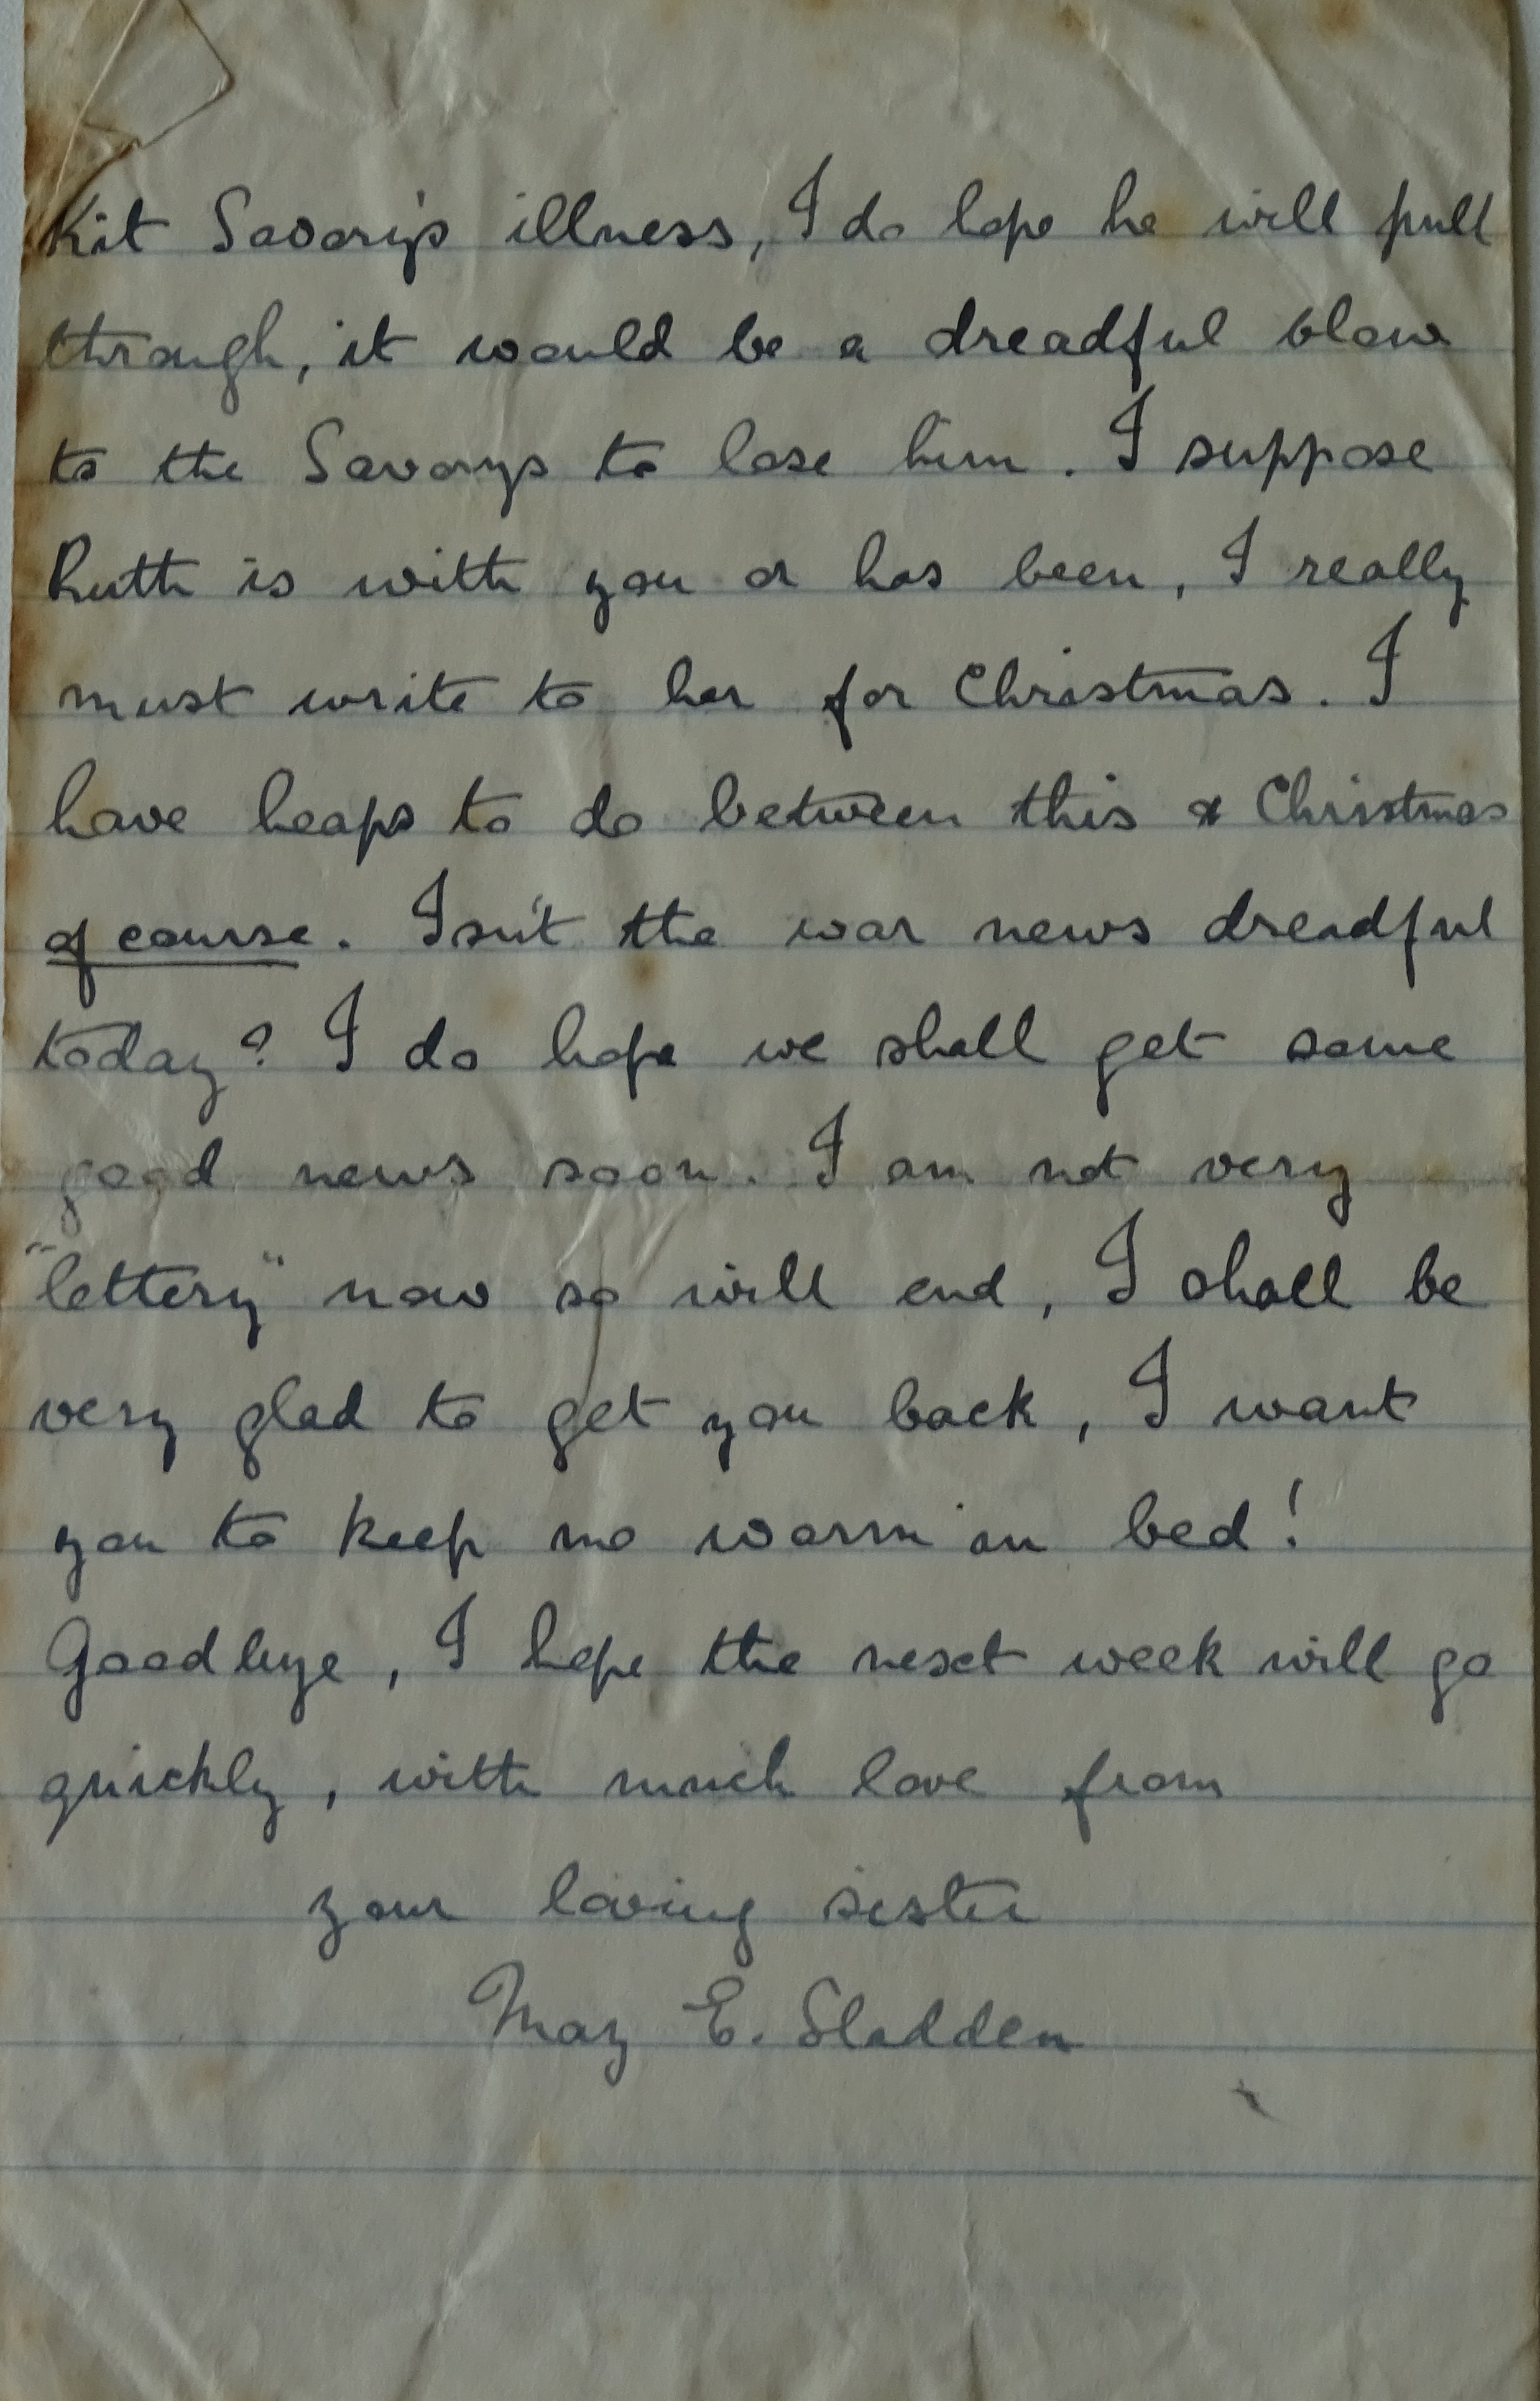 Kit Savory's illness, I do hope he will pull
through, it would be a dreadful blow
to the Savorys to lose him. I suppose
Ruth is with you or has been, I really
must write to her for Christmas. I
have heaps to do between this & Christmas
of course. Isn't the war news dreadful
today? I do hope we shall get some
good news soon. I am not very
"lettery" now so will end, I shall be
very glad to get you back, I want
you to keep me warm in bed!
Goodbye, I hope the next week will go
quickly, with much love from
your loving sister
May E. Sladden